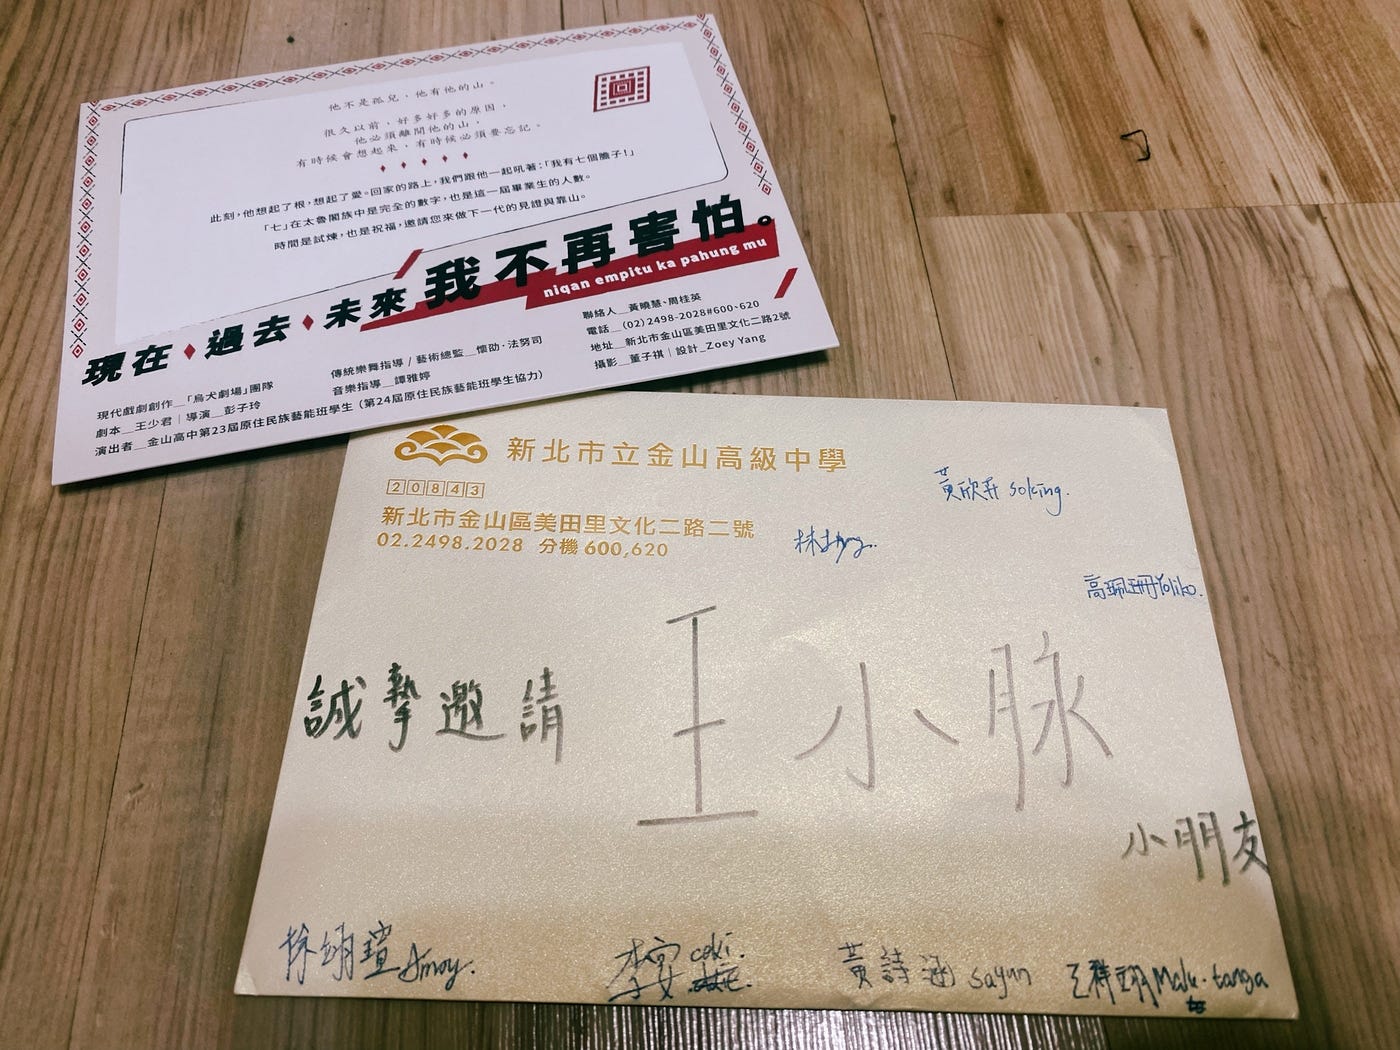 他不是孤兒，他有他的山。
很久以前，好多好多的原因，
他必須離開他的山，
有時候會想起來，有時候必須要忘記。
此刻，他想起了根，想起了愛。回家的路上，我們跟他一起吼著：「我有七個膽子！」
「七」在太魯閣族中是完全的數字，也是這一屆畢業生的人數。
時間是試煉，也是祝福，邀請您來做下一代的見證與靠山。
現在♦過去♦未來 我不再害怕。
niqan empitu ka pahung mu
現代戲劇創作＿「烏犬劇場」團隊
劇本＿王少君｜導演＿彭子玲
演出者＿金山高中第23屆原住民族藝能班學生（第24屆原住民族藝能班學生協力）
傳統樂舞指導 / 藝術總監＿懷劭·法努司
音樂指導＿譚雅婷
聯絡人＿黃曉慧、周桂英
電話＿(02)2498-2028#600、620
地址＿新北市金山區美田里文化二路2號
攝影＿董子祺｜設計_Zoey Yang
新北市立金山高級中學
20843
新北市金山區美田里文化二路二號
02.2498.2028 分機600,620
黃欣 soking.
林
高珮珊 Yoliko.
誠摯邀請
王小脉
小朋友
徐翊瑄 Amoy.
李 coki.
黃詩涵 sayun
王 翊 Malu.tanga